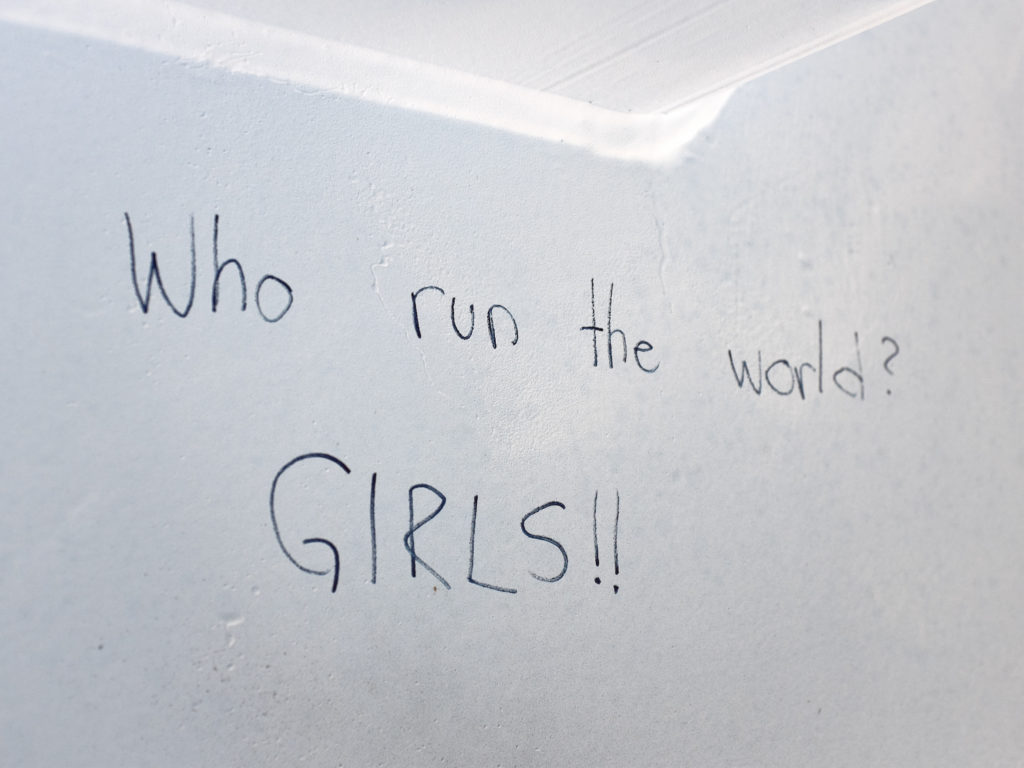 Who run the world?
GIRLS!!